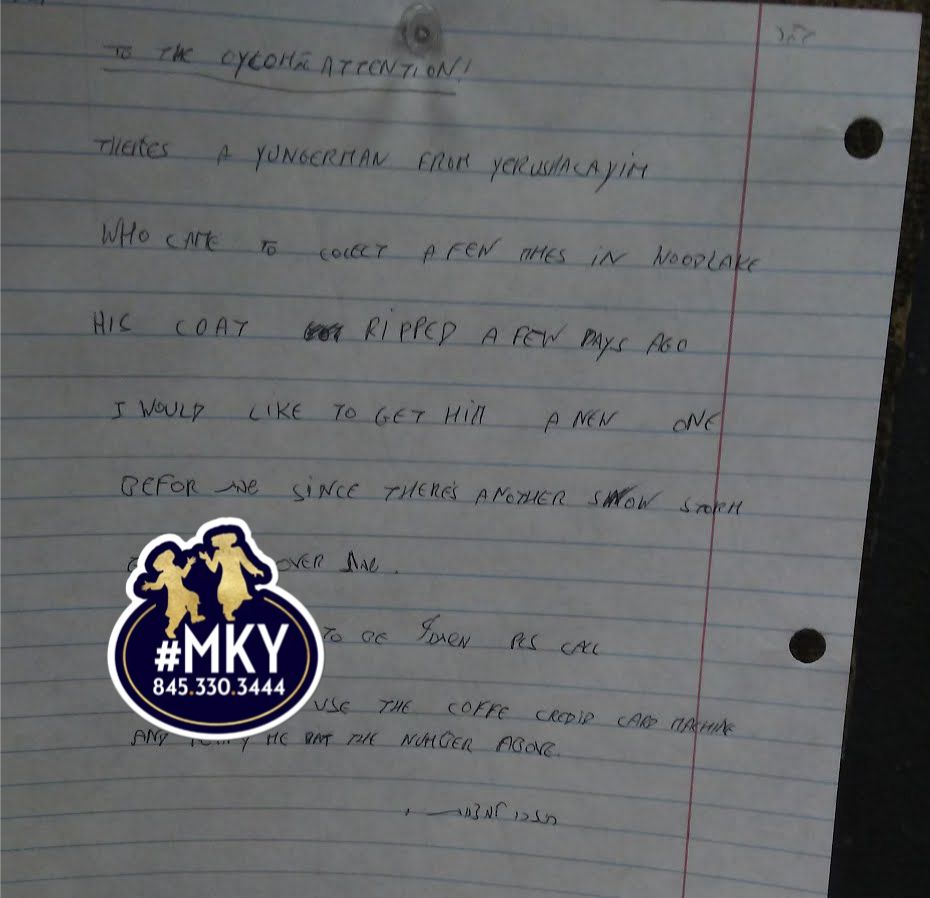 בס"ד
TO THE OYLOHM ATTENTION!
THERES A YUNGERMAN FROM YERUSHALAYIM
WHO CAME TO COLECT A FEW TIMES IN WOODLAKE
HIS COAT RIPPED A FEW DAYS AGO
I WOULD LIKE TO GET HIM A NEW ONE
BEFOR SINCE THERE'S ANOTHER SNOW STORM
OVER
TO BE PLS CALL
#MKY
845.330.3444
USE THE COFFE CREDIT CARD MACHINE
AND ME THE NUMBER ABOVE.